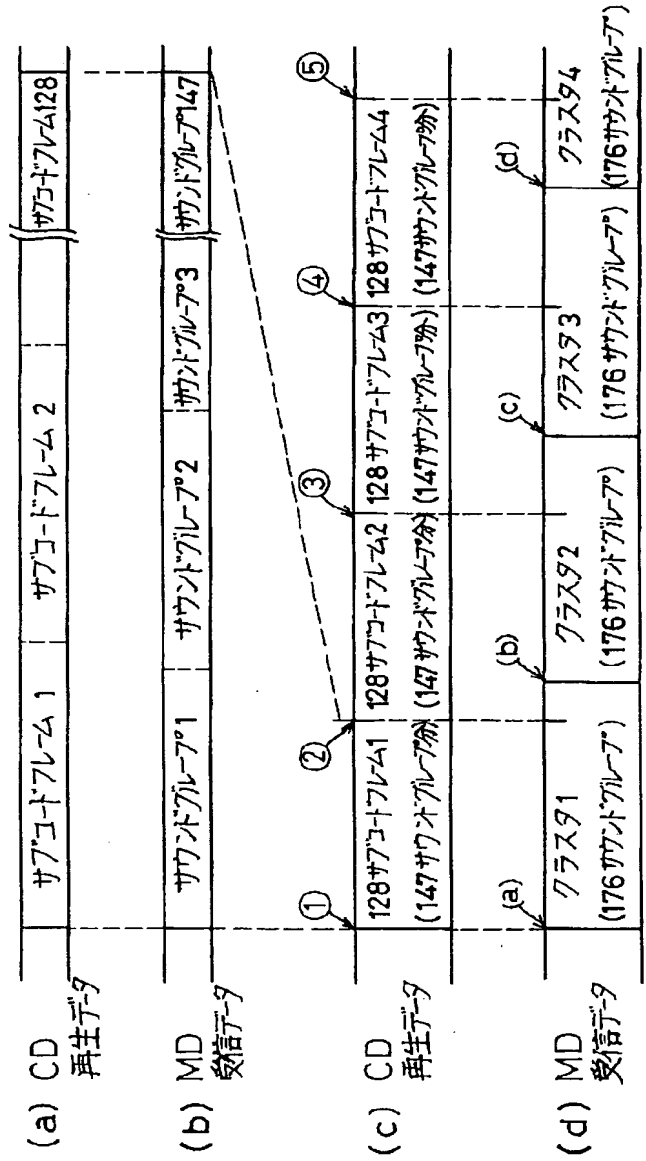 (a) CD
再生データ
サブコードフレーム 1
サブコードフレーム 2
サブコードフレーム128
(b) MD
受信データ
サウンドグループ1
サウンドグループ2
サウンドグループ3
サウンドグループ147
(c) CD
再生データ
① ② ③ ④ ⑤
128サブコードフレーム1
(147サウンドグループ分)
128サブコードフレーム2
(147サウンドグループ分)
128サブコードフレーム3
(147サウンドグループ分)
128サブコードフレーム4
(147サウンドグループ分)
(d) MD
受信データ
(a) (b) (c) (d)
クラスタ1
(176サウンドグループ)
クラスタ2
(176サウンドグループ)
クラスタ3
(176サウンドグループ)
クラスタ4
(176サウンドグループ)